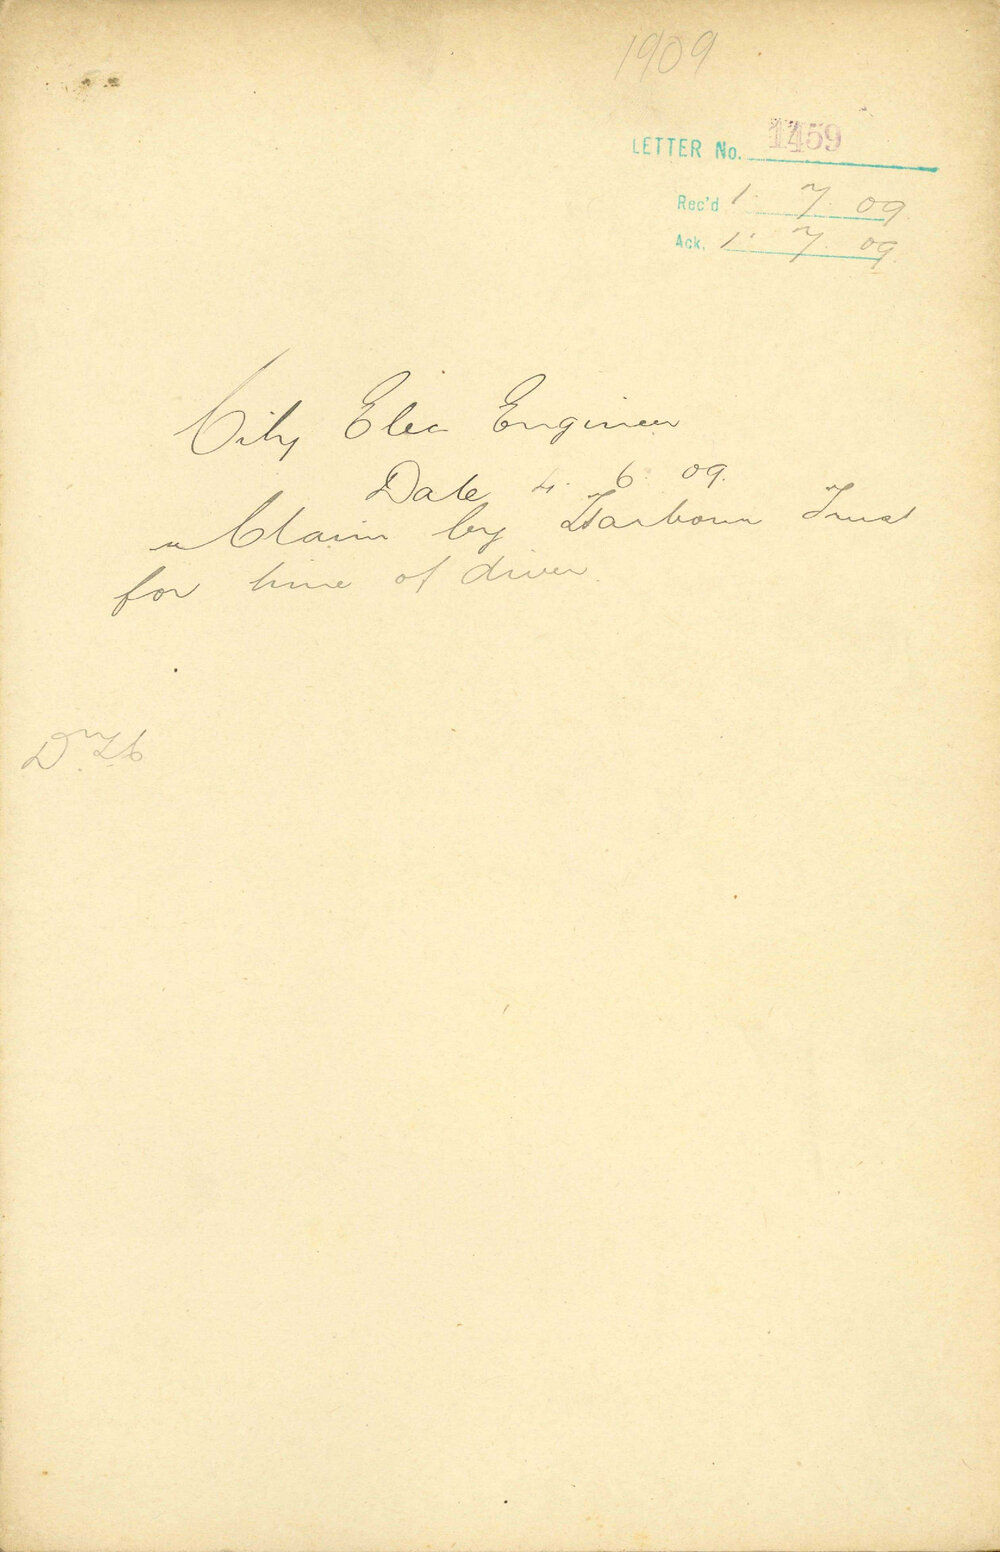 1909
LETTER No. 1459
Rec'd 1. 7. 09.
Ack. 1. 7. 09.
City Elec Engineer
Date 4. 6. 09.
Claim by Harbour Trust
for time of diver.